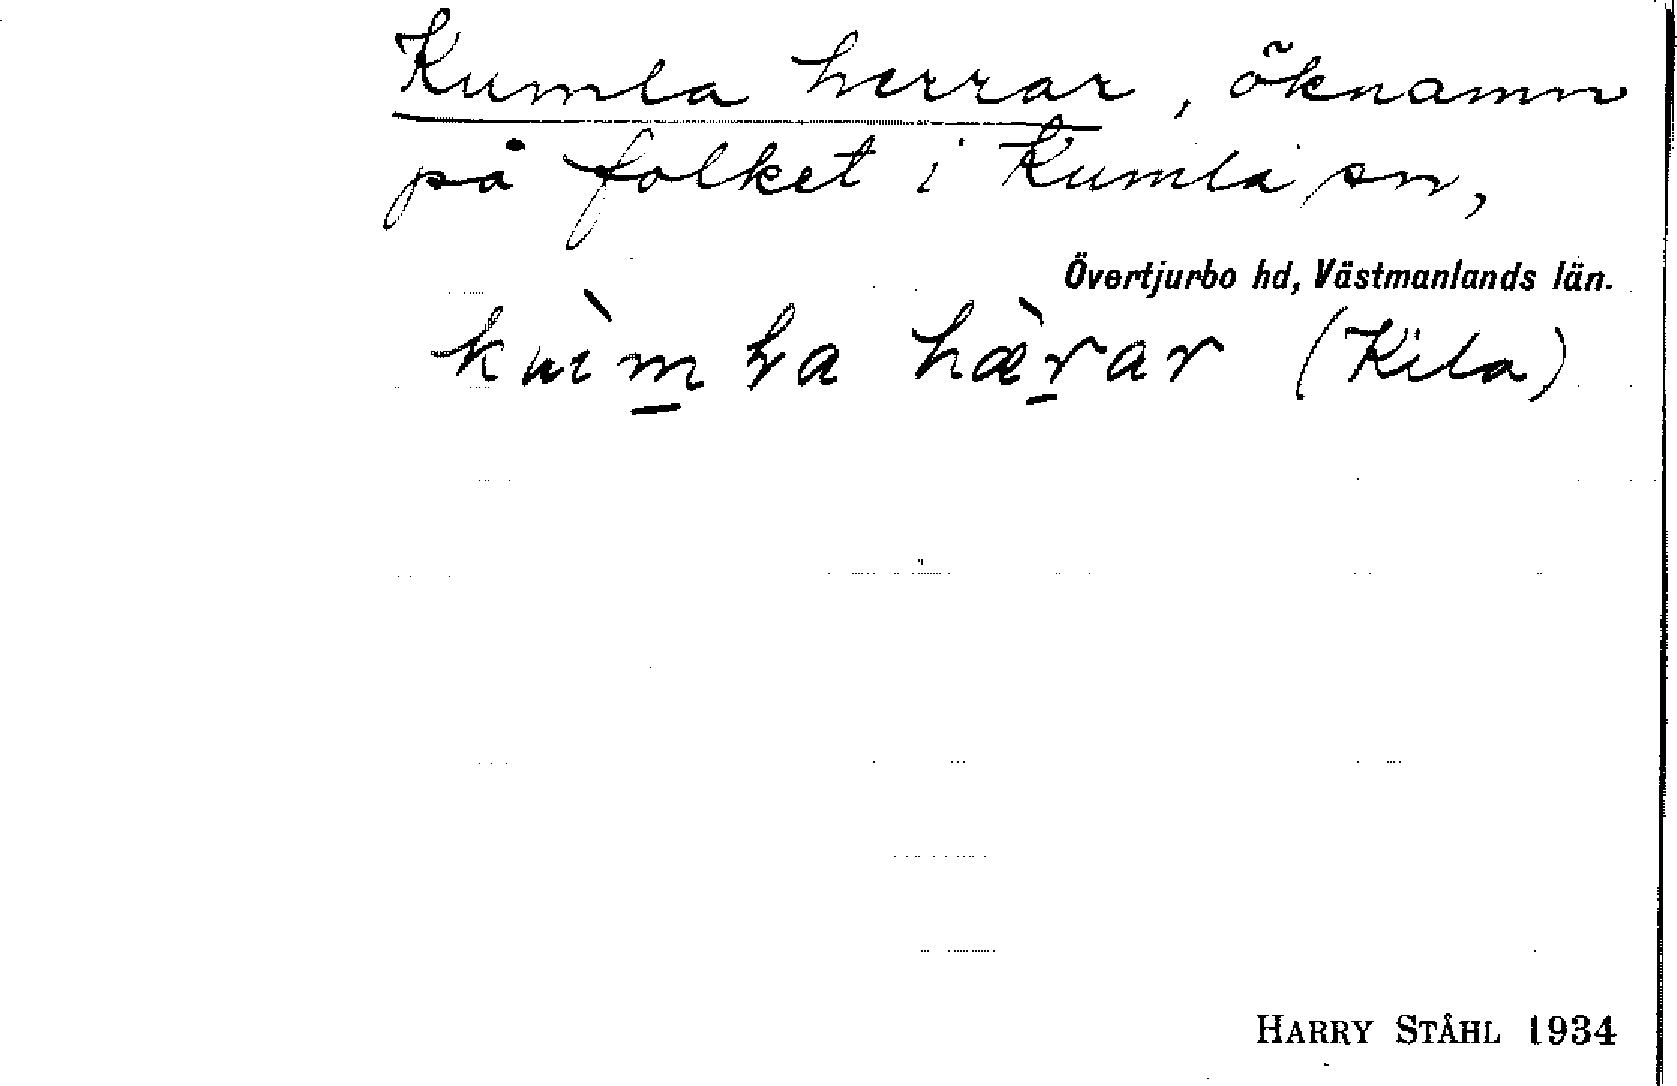 Kumla herrar, öknamn
på folket i Kumla sn,
Övertjurbo hd, Västmanlands län.
hæ̀rar (Kila)
HARRY STÅHL 1934